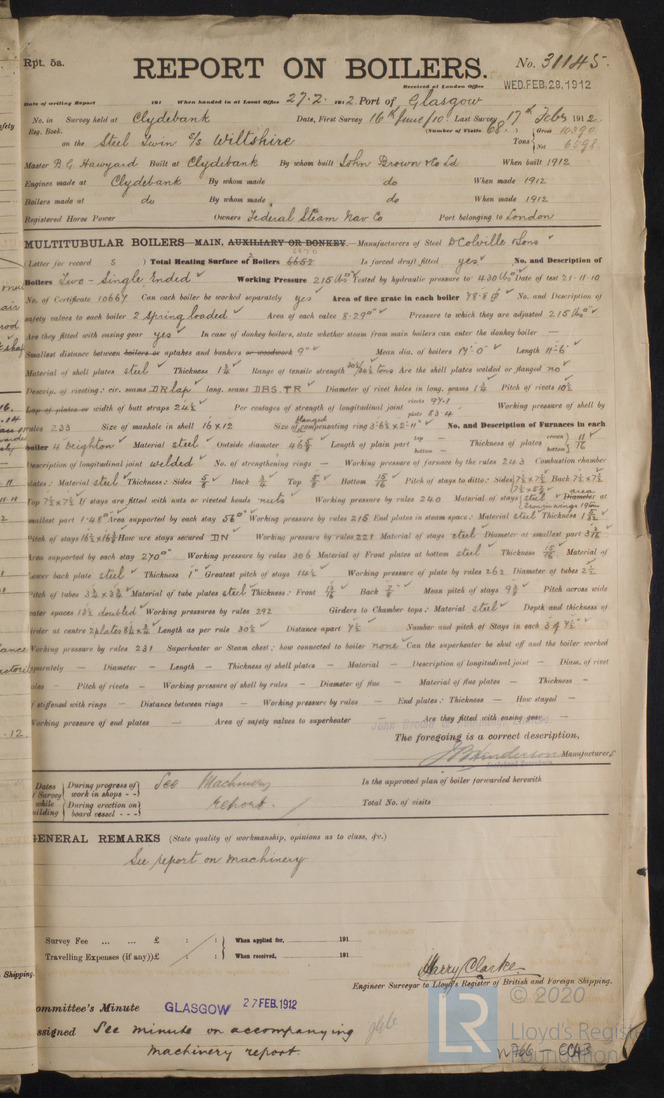 Rpt. 5a.
REPORT ON BOILERS.
No. 31145.
Received at London Office
WED. FEB. 28. 1912
Date of writing Report 191 When handed in at Local Office 27.2. 1912. Port of Glasgow
No. in Reg. Book. Survey held at Clydebank Date, First Survey 16th June/10 Last Survey 17th Feby 1912
(Number of Visits 68.)
on the Steel Twin S/S Wiltshire Tons { Gross 10390 Net 6598
Master B. G. Hawyard Built at Clydebank By whom built John Brown & Co Ld When built 1912
Engines made at Clydebank By whom made do When made 1912
Boilers made at do By whom made do When made 1912
Registered Horse Power Owners Federal Steam Nav Co Port belonging to London
MULTITUBULAR BOILERS - MAIN, AUXILIARY OR DONKEY. - Manufacturers of Steel D Colville & Sons
(Letter for record S) Total Heating Surface of Boilers 6652 Is forced draft fitted yes No. and Description of
Boilers Two - Single Ended Working Pressure 215 lbs Tested by hydraulic pressure to 430 lbs Date of test 21.11.10
No. of Certificate 10664 Can each boiler be worked separately yes Area of fire grate in each boiler 78.8 No. and Description of
safety valves to each boiler 2 Spring loaded Area of each valve 8.29 Pressure to which they are adjusted 215 lbs
Are they fitted with easing gear yes In case of donkey boilers, state whether steam from main boilers can enter the donkey boiler —
Smallest distance between boilers or uptakes and bunkers or woodwork 9" Mean dia. of boilers 17'.0" Length 11'-6"
Material of shell plates steel Thickness Range of tensile strength tons Are the shell plates welded or flanged no
Descrip. of riveting: cir. seams DR lap long. seams DBS.TR Diameter of rivet holes in long. seams 1¼ Pitch of rivets
Lap of plates or width of butt straps 24½ Per centages of strength of longitudinal joint rivets 97.1 plate 83.4 Working pressure of shell by
rules 233 Size of manhole in shell 16 x 12 Size of compensating ring flanged No. and Description of Furnaces in each
boiler 4 Deighton Material steel Outside diameter Length of plain part top — bottom — Thickness of plates crown bottom 11/16
Description of longitudinal joint welded No. of strengthening rings — Working pressure of furnace by the rules 243 Combustion chamber
plates: Material steel Thickness: Sides 5/8 Back ¾ Top 5/8 Bottom 15/16 Pitch of stays to ditto: Sides 7½ x 7½ Back 7½ x 7½
Top 7½ x 7½ If stays are fitted with nuts or riveted heads nuts Working pressure by rules 240 Material of stays steel Diameter at area
smallest part 1.48 Area supported by each stay 56 Working pressure by rules 215 End plates in steam space: Material steel Thickness
Pitch of stays 16½ x 16½ How are stays secured DN Working pressure by rules 221 Material of stays steel Diameter at smallest part
Area supported by each stay 270 Working pressure by rules 306 Material of Front plates at bottom steel Thickness 15/16 Material of
Lower back plate steel Thickness 1" Greatest pitch of stays 14½ Working pressure of plate by rules 262 Diameter of tubes 2½
Pitch of tubes Material of tube plates steel Thickness: Front 15/16 Back 7/8 Mean pitch of stays Pitch across wide
water spaces 13½ doubled Working pressures by rules 292 Girders to Chamber tops: Material steel Depth and thickness of
girder at centre 2 plates Length as per rule 30½ Distance apart 7½ Number and pitch of Stays in each 3 @ 7½
Working pressure by rules 231 Superheater or Steam chest; how connected to boiler none Can the superheater be shut off and the boiler worked
separately — Diameter — Length — Thickness of shell plates — Material — Description of longitudinal joint — Diam. of rivet
holes — Pitch of rivets — Working pressure of shell by rules — Diameter of flue — Material of flue plates — Thickness —
If stiffened with rings — Distance between rings — Working pressure by rules — End plates: Thickness — How stayed —
Working pressure of end plates — Area of safety valves to superheater Are they fitted with easing gear —
The foregoing is a correct description,
Manufacturer.
Dates of Survey while building { During progress of work in shops - - During erection on board vessel - - - } See Machinery report.
Is the approved plan of boiler forwarded herewith
Total No. of visits
GENERAL REMARKS (State quality of workmanship, opinions as to class, &c.)
See report on machinery
Survey Fee ... ... £ : : When applied for, 191
Travelling Expenses (if any) £ : : When received, 191
Harry Clarke
Engineer Surveyor to Lloyd's Register of British and Foreign Shipping.
Committee's Minute GLASGOW 27 FEB. 1912
Assigned See minute on accompanying
machinery report.
© 2020
LR
Lloyd's Register
Foundation
W766 - 0043